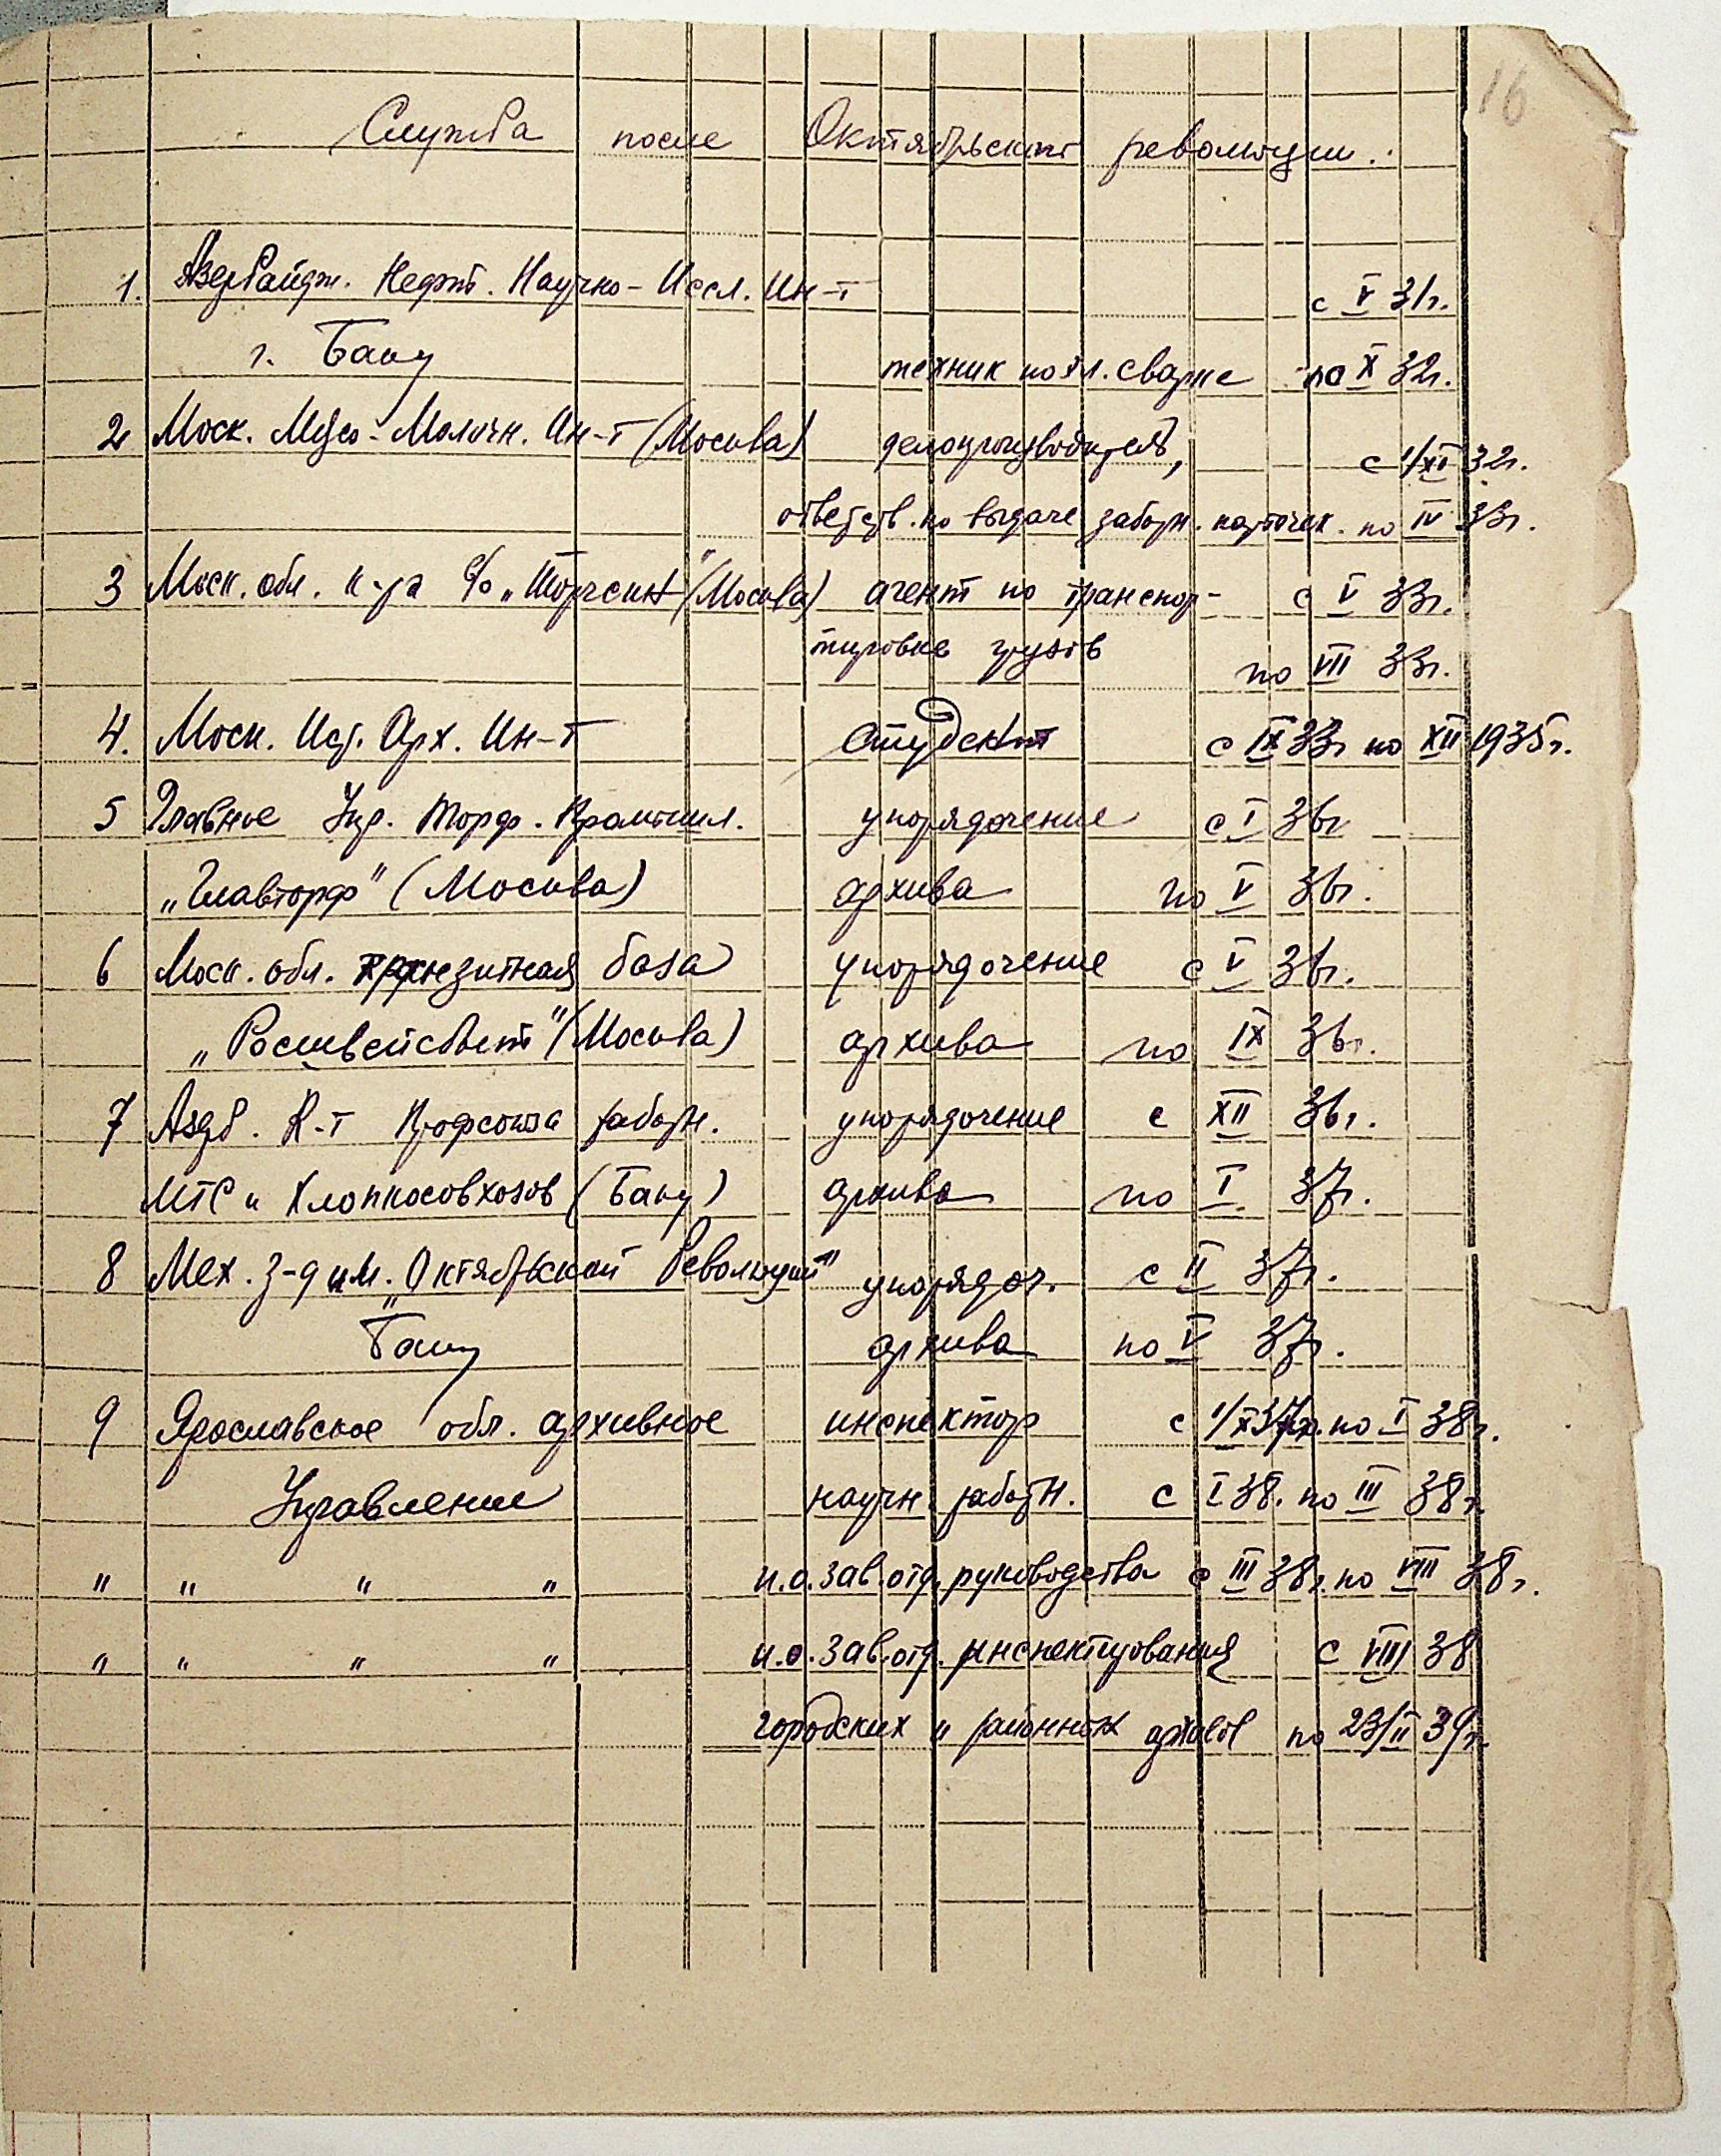 16
Служба после Октябрьской революции.
1. Азербайдж. Нефт. Научно-Иссл. Ин-т с V 31г.
г. Баку техник по эл. сварке по X 32г.
2 Моск. Мясо-Молочн. Ин-т (Москва) делопроизводитель, с 1/XI 32г.
ответств. по выдаче заборн. карточек. по IV 33г.
3 Моск. обл. к-ра В/о „Торгсин" (Москва) агент по транспор- с V 33г.
тировке грузов по VII 33г.
4. Моск. Ист. Арх. Ин-т студент с IX 33г по XII 1935г.
5 Главное Упр. Торф. Промышл. упорядочение с I 36г
„Главторф" (Москва) архива по V 36г.
6 Моск. обл. транзитная база упорядочение с V 36г.
„Росшвейсбыт" (Москва) архива по IX 36г.
7 Азерб. К-т Профсоюза работн. упорядочение с XII 36г.
МТС и Хлопкосовхозов (Баку) архива по I 37г.
8 Мех. З-д им. „Октябрьской Революции" упорядоч. с II 37г.
Баку архива по V 37г.
9 Ярославское обл. архивное инспектор с 1/X 37г. по I 38г.
Управление научн. работн. с I 38. по III 38г.
" " " " и.о. зав. отд. руководства с III 38г. по VIII 38г.
" " " " и.о. зав. отд. инспектирования с VIII 38
городских и районных архивов по 23/II 39г.